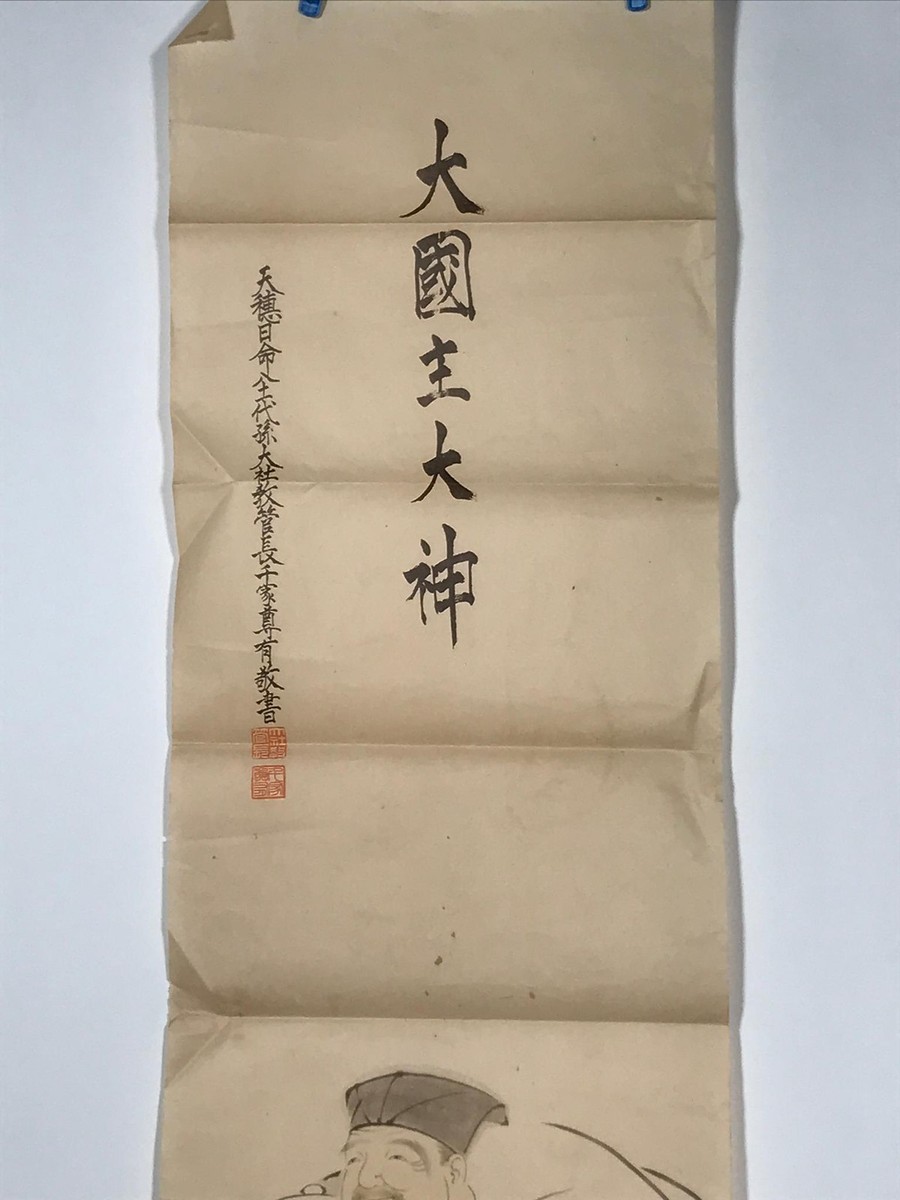 大國主大神
天穗日命八十一代孫大社教管長千家尊有敬書